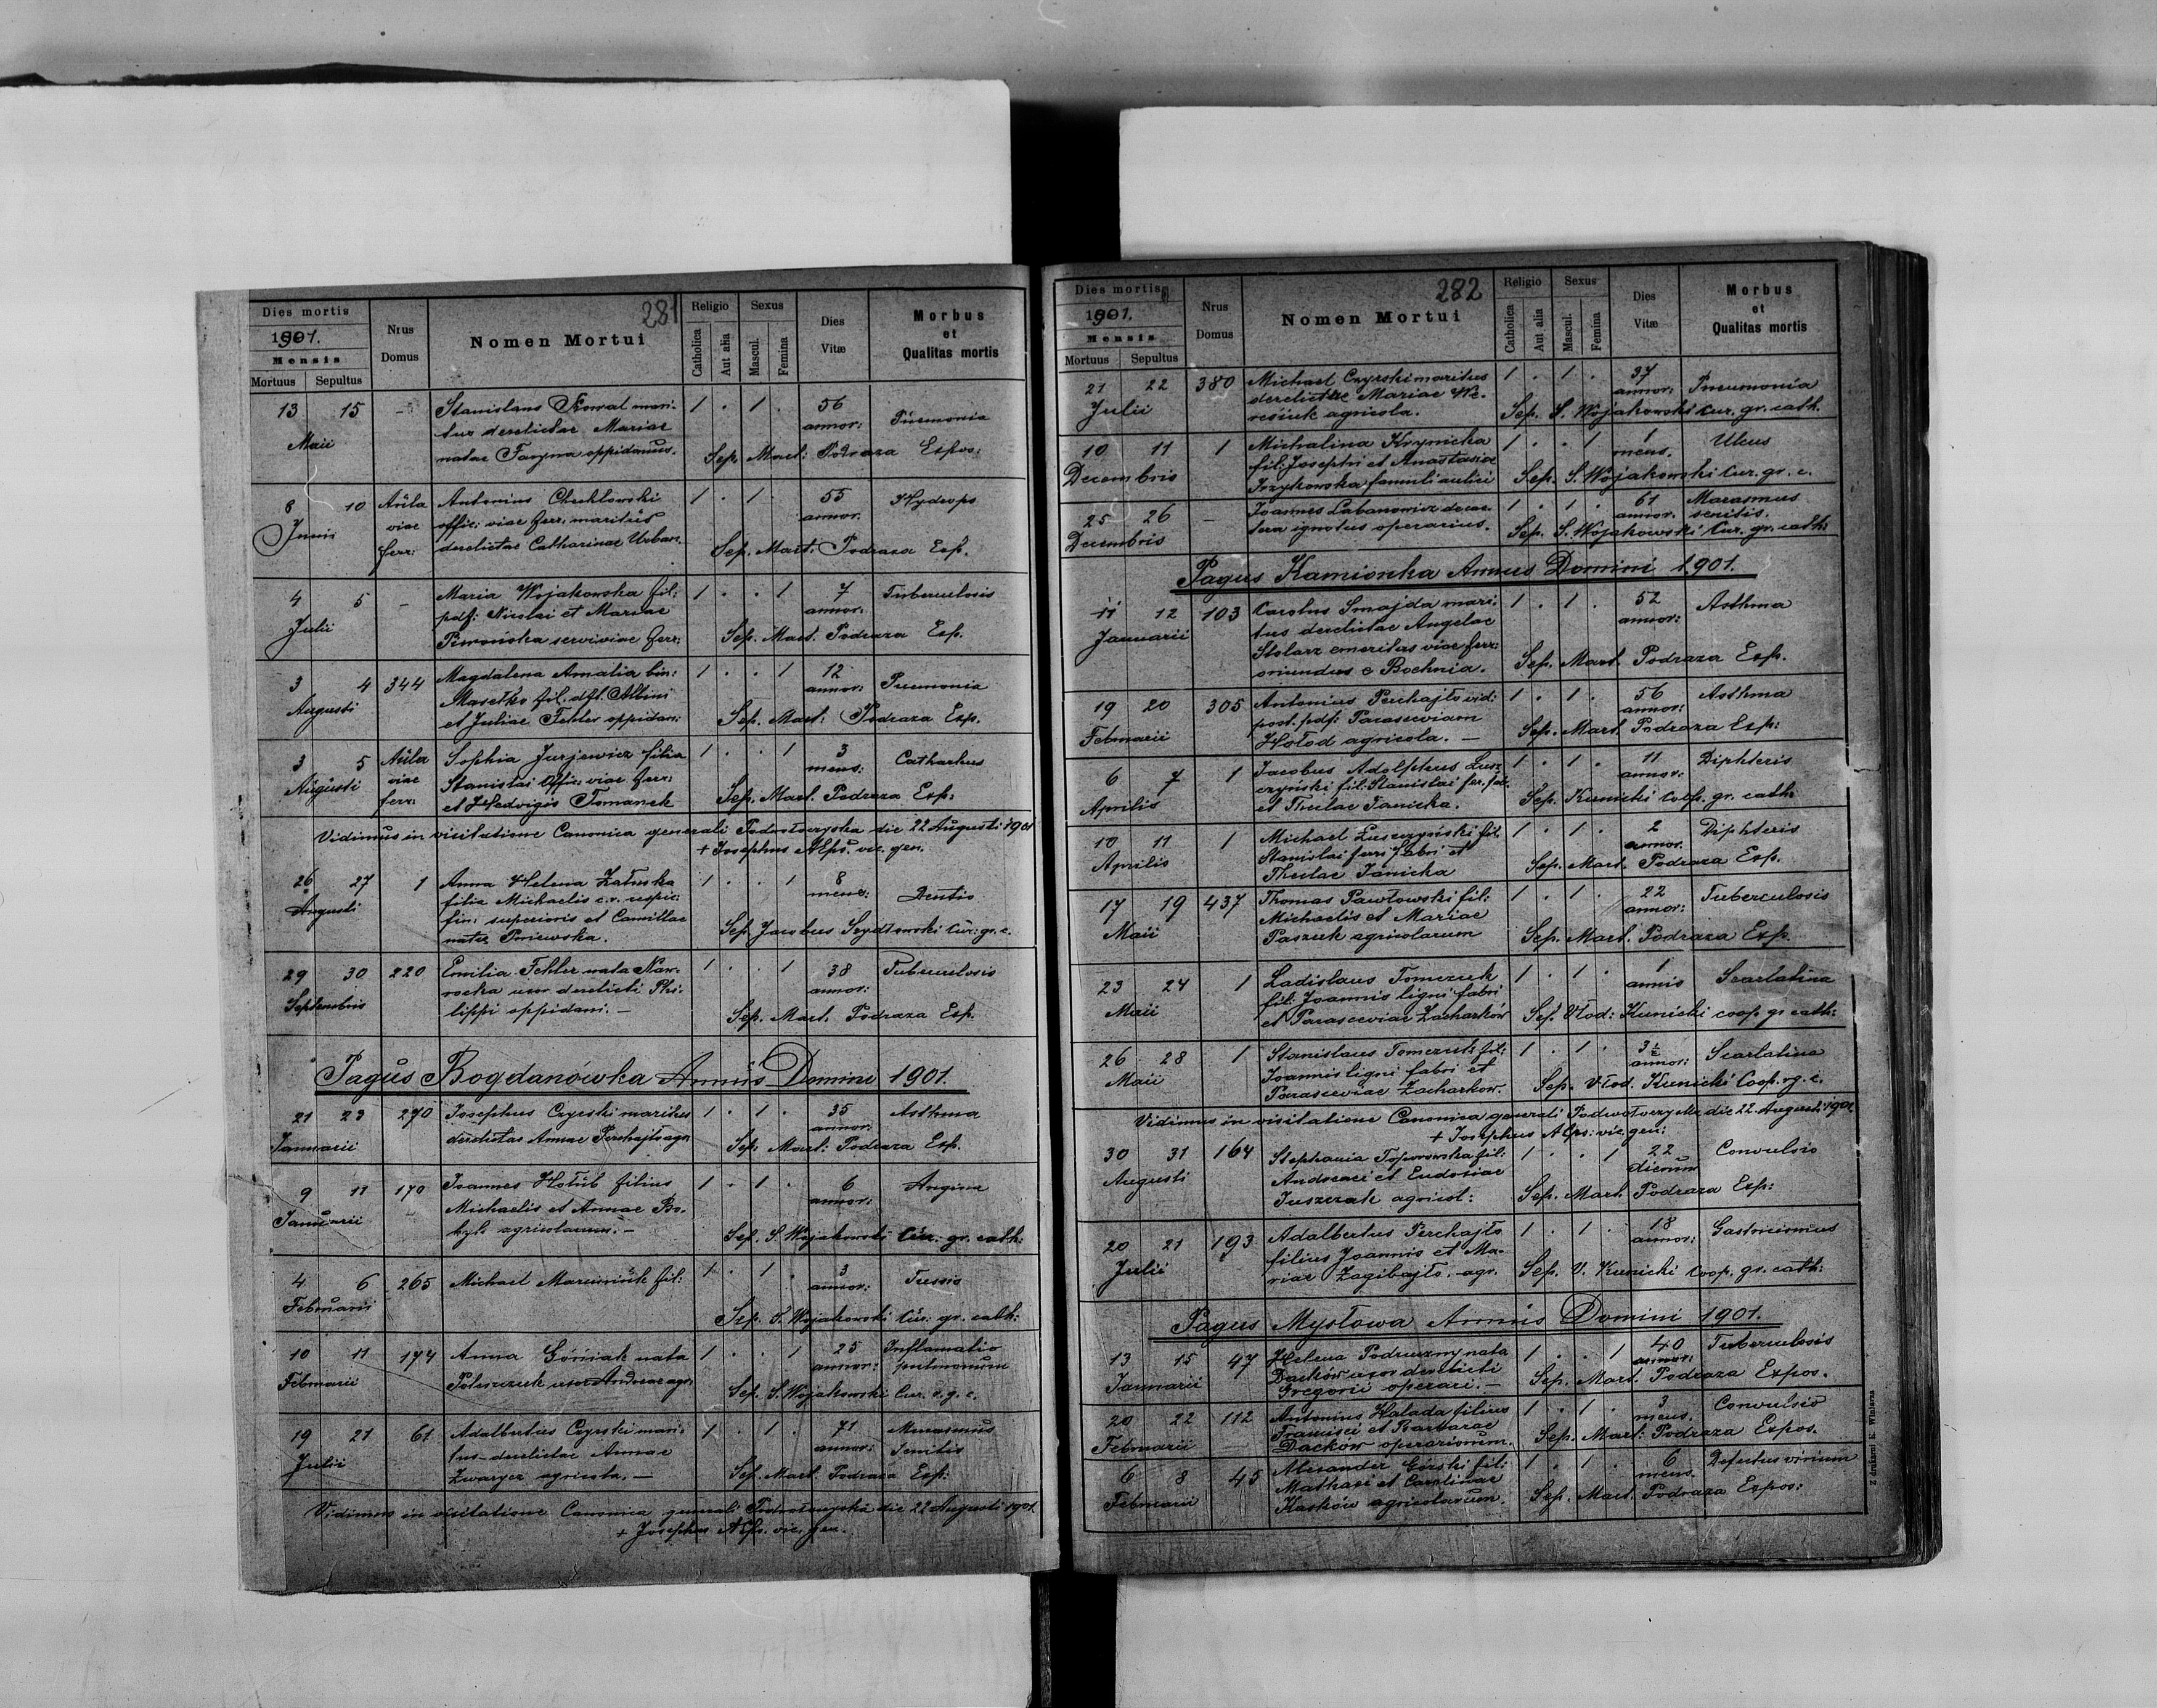 281
Dies mortis
1901.
Mensis
Mortuus Sepultus
Nrus Domus
Nomen Mortui
Religio
Catholica
Aut alia
Sexus
Mascul.
Femina
Dies Vitæ
Morbus et Qualitas mortis
13 15 - Stanislaus Kowal mari- 1 . 1 . 56 Pneumonia
Maii tus derelictae Mariae annor:
natae Faryna oppidanus. Sep. Mart: Podraza Expos:
8 10 Aula Antonius Chuchlowski 1 . 1 . 55 Hydrops
Junii viae offic: viae ferr: maritus annor.
ferr: derelictae Catharinae Urban. Sep. Mart. Podraza Exp.
4 5 - Maria Wojakowska fil: 1 . . 1 7 Tuberculosis
Julii pdf: Nicolai et Mariae annor:
servi viae ferr: Sep. Mart. Podraza Exp.
3 4 344 Magdalena Amalia bin: 1 . . 1 12 Pneumonia
Augusti Masetko fil. dft. Albini annor:
et Juliae Fehler oppidan: Sep. Mart: Podraza Exp.
3 5 Aula Sophia Jurjewicz filia 1 . . 1 3 Catharhus
Augusti viae Stanislai offic: viae ferr: mens:
ferr: et Hedvigis Tomanek Sep. Mart. Podraza Exp:
Vidimus in visitatione Canonica generali Podwołoczyska die 22 Augusti 1901
+ Josephus Alps. vic. gen.
26 27 1 Anna Helena Załuska 1 . . 1 8 Dentio
Augusti filia Michaelis c.r. respic: mens:
fin: superioris et Camillae Sep. Jacobus Szydłowski Cur: gr. c.
natae
29 30 220 Emilia Fehler nata Naw- 1 . . 1 38 Tuberculosis
Septembris rocka uxor derelicti Phi- annor:
lippi oppidani. — Sep. Mart. Podraza Exp.
Pagus Bogdanówka Annus Domini 1901.
21 23 270 Josephus Czyrski maritus 1 . 1 . 35 Asthma
Januarii derelictae Annae Perchajło agr. annor:
Sep. Mart: Podraza Exp.
9 11 170 Joannes Hołub filius 1 . 1 . 6 Angina
Januarii Michaelis et Annae Bo- annor:
agricolarum. — Sep. S. Wojakowski Cur. gr. cath:
4 6 265 Michael Marciniuk fil: 1 . 1 . 3 Tussis
Februarii annor:
Sep. S. Wojakowski Cur: gr. cath:
10 11 174 Anna Górniak nata 1 . . 1 25 Inflamatio
Februarii uxor Andreae agr. annor: pulmonum
Sep. S. Wojakowski Cur. r. g. c.
19 21 61 Adalbertus Czyrski mari- 1 . 1 . 71 Marasmus
Julii tus derelictae Annae annor: Senilis
Zwarycz agricola. — Sep. Mart. Podraza Exp:
Vidimus in visitatione Canonica generali Podwołoczyska die 22 Augusti 1901.
+ Josephus Alps. vic. gen.
282
Dies mortis
1901.
Mensis
Mortuus Sepultus
Nrus Domus
Nomen Mortui
Religio
Catholica
Aut alia
Sexus
Mascul.
Femina
Dies Vitæ
Morbus et Qualitas mortis
21 22 380 Michael Czyrski maritus 1 . 1 . 37 Pneumonia
Julii derelictae Mariae We- annor:
agricola. Sep. S. Wojakowski Cur. gr. cath.
10 11 1 Michalina Krynicka 1 . . 1 1 Ulcus
Decembris fil: Josephi et Anastasiae mens.
Irzykowska famuli aulici Sep. S. Wojakowski Cur. gr. c.
25 26 - Joannes Labanowicz de cae- 1 . 1 . 61 Marasmus
Decembris tera ignotus operarius. annor. senilis.
Sep. S. Wojakowski Cur. gr. cath:
Pagus Kamionka Annus Domini 1901.
11 12 103 Carolus Smajda mari- 1 . 1 . 52 Asthma
Januarii tus derelictae Angelae annor:
Stolarz emeritus viae ferr:
oriundus e Bochnia. Sep. Mart. Podraza Exp.
19 20 305 Antonius Perchajło vid: 1 . 1 . 56 Asthma
Februarii post. pdf: Parasceviam annor:
Hołod agricola. — Sep. Mart. Podraza Exp:
6 7 1 Jacobus Adolphus Lusz- 1 . 1 . 11 Diphteris
Aprilis czyński fil. Stanislai fer. fab. annor:
et Theclae Janicka. Sep. Kunicki Coop. gr. cath:
10 11 1 Michael Luszczyński fil. 1 . 1 . 2 Diphteris
Aprilis Stanislai ferri fabri et annor.
Theclae Janicka Sep. Mart. Podraza Exp.
17 19 437 Thomas Pawłowski fil: 1 . 1 . 22 Tuberculosis
Maii Michaelis et Mariae annor:
Paszuk agricolarum Sep. Mart. Podraza Exp.
23 24 1 Ladislaus Tomczuk 1 . 1 . 1 Scarlatina
Maii fil: Joannis ligni fabri annis
et Parasceviae Zacharków Sep. Vlod: Kunicki coop. gr cath:
26 28 1 Stanislaus Tomczuk fil: 1 . 1 . 3½ Scarlatina
Maii Joannis ligni fabri et annor:
Parasceviae Zacharków. Sep. Vlod. Kunicki Coop. r. g. c.
Vidimus in visitatione Canonica generali Podwołoczyska die 22 Augusti 1901
+ Josephus Alps: vic. gen:
30 31 164 Stephania Toporowska fil: 1 . . 1 22 Convulsio
Augusti Andreae et Eudosiae dierum
Juszczak agricol: Sep. Mart. Podraza Exp:
20 21 193 Adalbertus Perchajło 1 . 1 . 18 Gastricismus
Julii filius Joannis et Ma- annor:
riae Zagibajło. agr. Sep. V. Kunicki Coop. gr. cath:
Pagus Mysłowa Annus Domini 1901.
13 15 47 Helena Podruczny nata 1 . . 1 40 Tuberculosis
Januarii Dacków uxor derelicti annor:
Gregorii operari. — Sep. Mart. Podraza Expos.
20 22 112 Antonius Halada filius 1 . 1 . 3 Convulsio
Februarii Francisci et Barbarae mens.
Dacków operariorum. Sep. Mart: Podraza Expos.
6 8 45 Alexander Górski fil: 1 . 1 . 6 Defectus virium
Februarii Mathaei et Carolinae mens.
Kasków agricolarum. Sep. Mart. Podraza Expos:
Z drukarni E. Winiarza